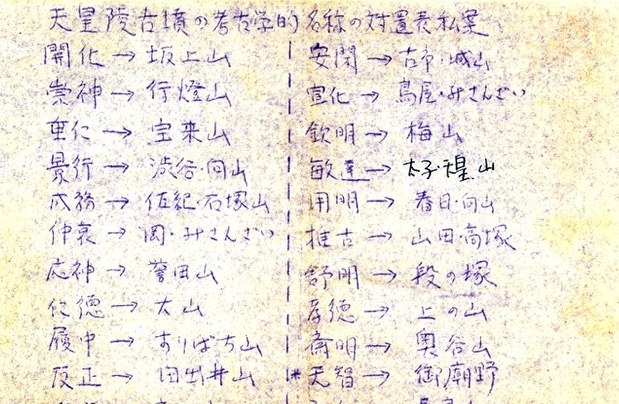 天皇陵古墳の考古学的名称の対置表私案
開化→坂上山
崇神→行燈山
垂仁→宝来山
景行→渋谷・向山
成務→佐紀・石塚山
仲哀→岡・みさんざい
応神→誉田山
仁徳→大山
履中→すりばち山
反正→田出井山
安閑→古市・城山
宣化→鳥屋・みさんざい
欽明→梅山
敏達→太子・皇山
用明→春日・向山
推古→山田・高塚
舒明→段の塚
孝徳→上の山
斎明→奥谷山
*天智→御廟野